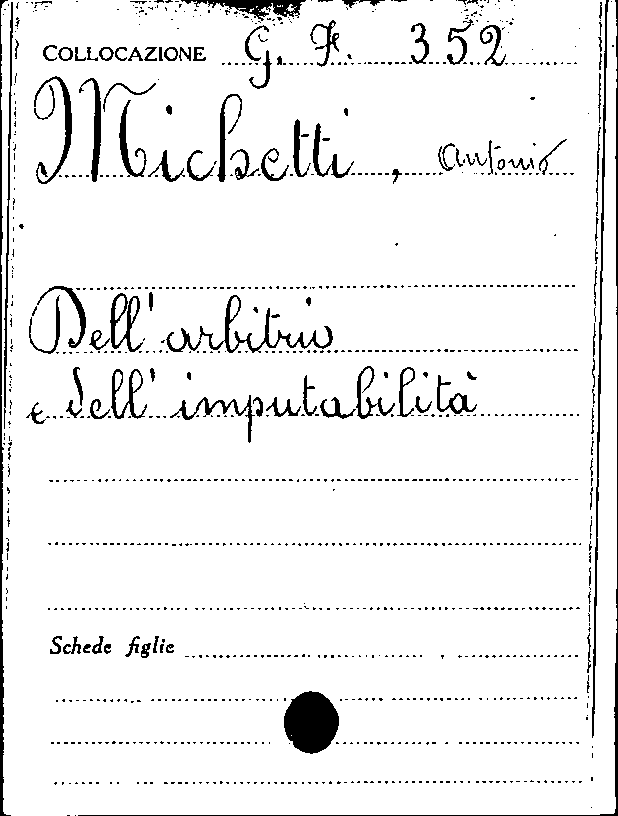 COLLOCAZIONE G. F. 352
Michetti, Antonio
Dell' arbitrio
e dell' imputabilità
Schede figlie